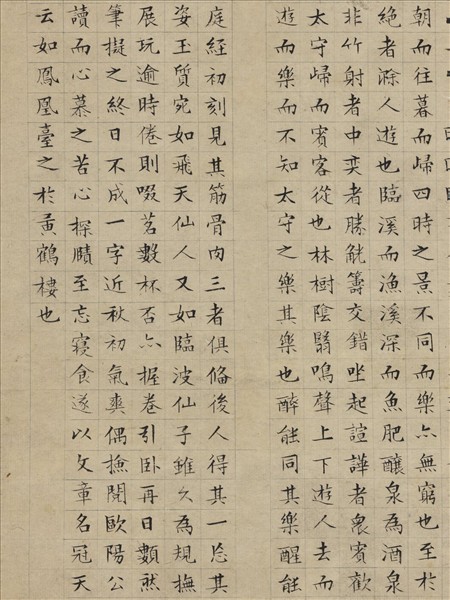 朝而往暮而歸四時之景不同而樂亦無窮也至於
絕者滁人遊也臨溪而漁溪深而魚肥釀泉為酒泉
非竹射者中奕者勝觥籌交錯坐起諠譁者衆賓歡
太守歸而賓客從也林樹陰翳鳴聲上下遊人去而
遊而樂而不知太守之樂其樂也醉能同其樂醒能
庭經初刻見其筋骨肉三者俱俻後人得其一忘其
姿玉質宛如飛天仙人又如臨波仙子雖久為規撫
展玩逾時倦則啜茗數杯否亦握卷引臥再日數然
筆擬之終日不成一字近秋初氣爽偶撿閱歐陽公
讀而心慕之苦心探賾至忘寢食遂以文章名冠天
云如鳳凰臺之於黃鶴樓也